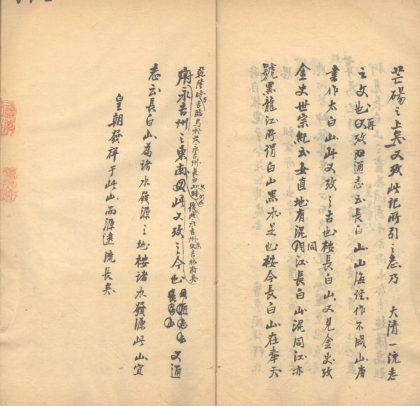 芒碭之上矣又攷此記所引之志乃 大清一統志
之文也再攷通志云長白山山海經作不咸山唐
書作太白山此又攷之古也按長白山又見金史攷
金史世宗紀云女直地有混同江長白山混同江亦
號黑龍江所謂白山黑水是也按今長白山在奉天
府永吉州之東南此又攷之今也 又通
志云長白山為諸水發源之地按諸水發源此山宜
皇朝發祥于此山而源遠流長矣